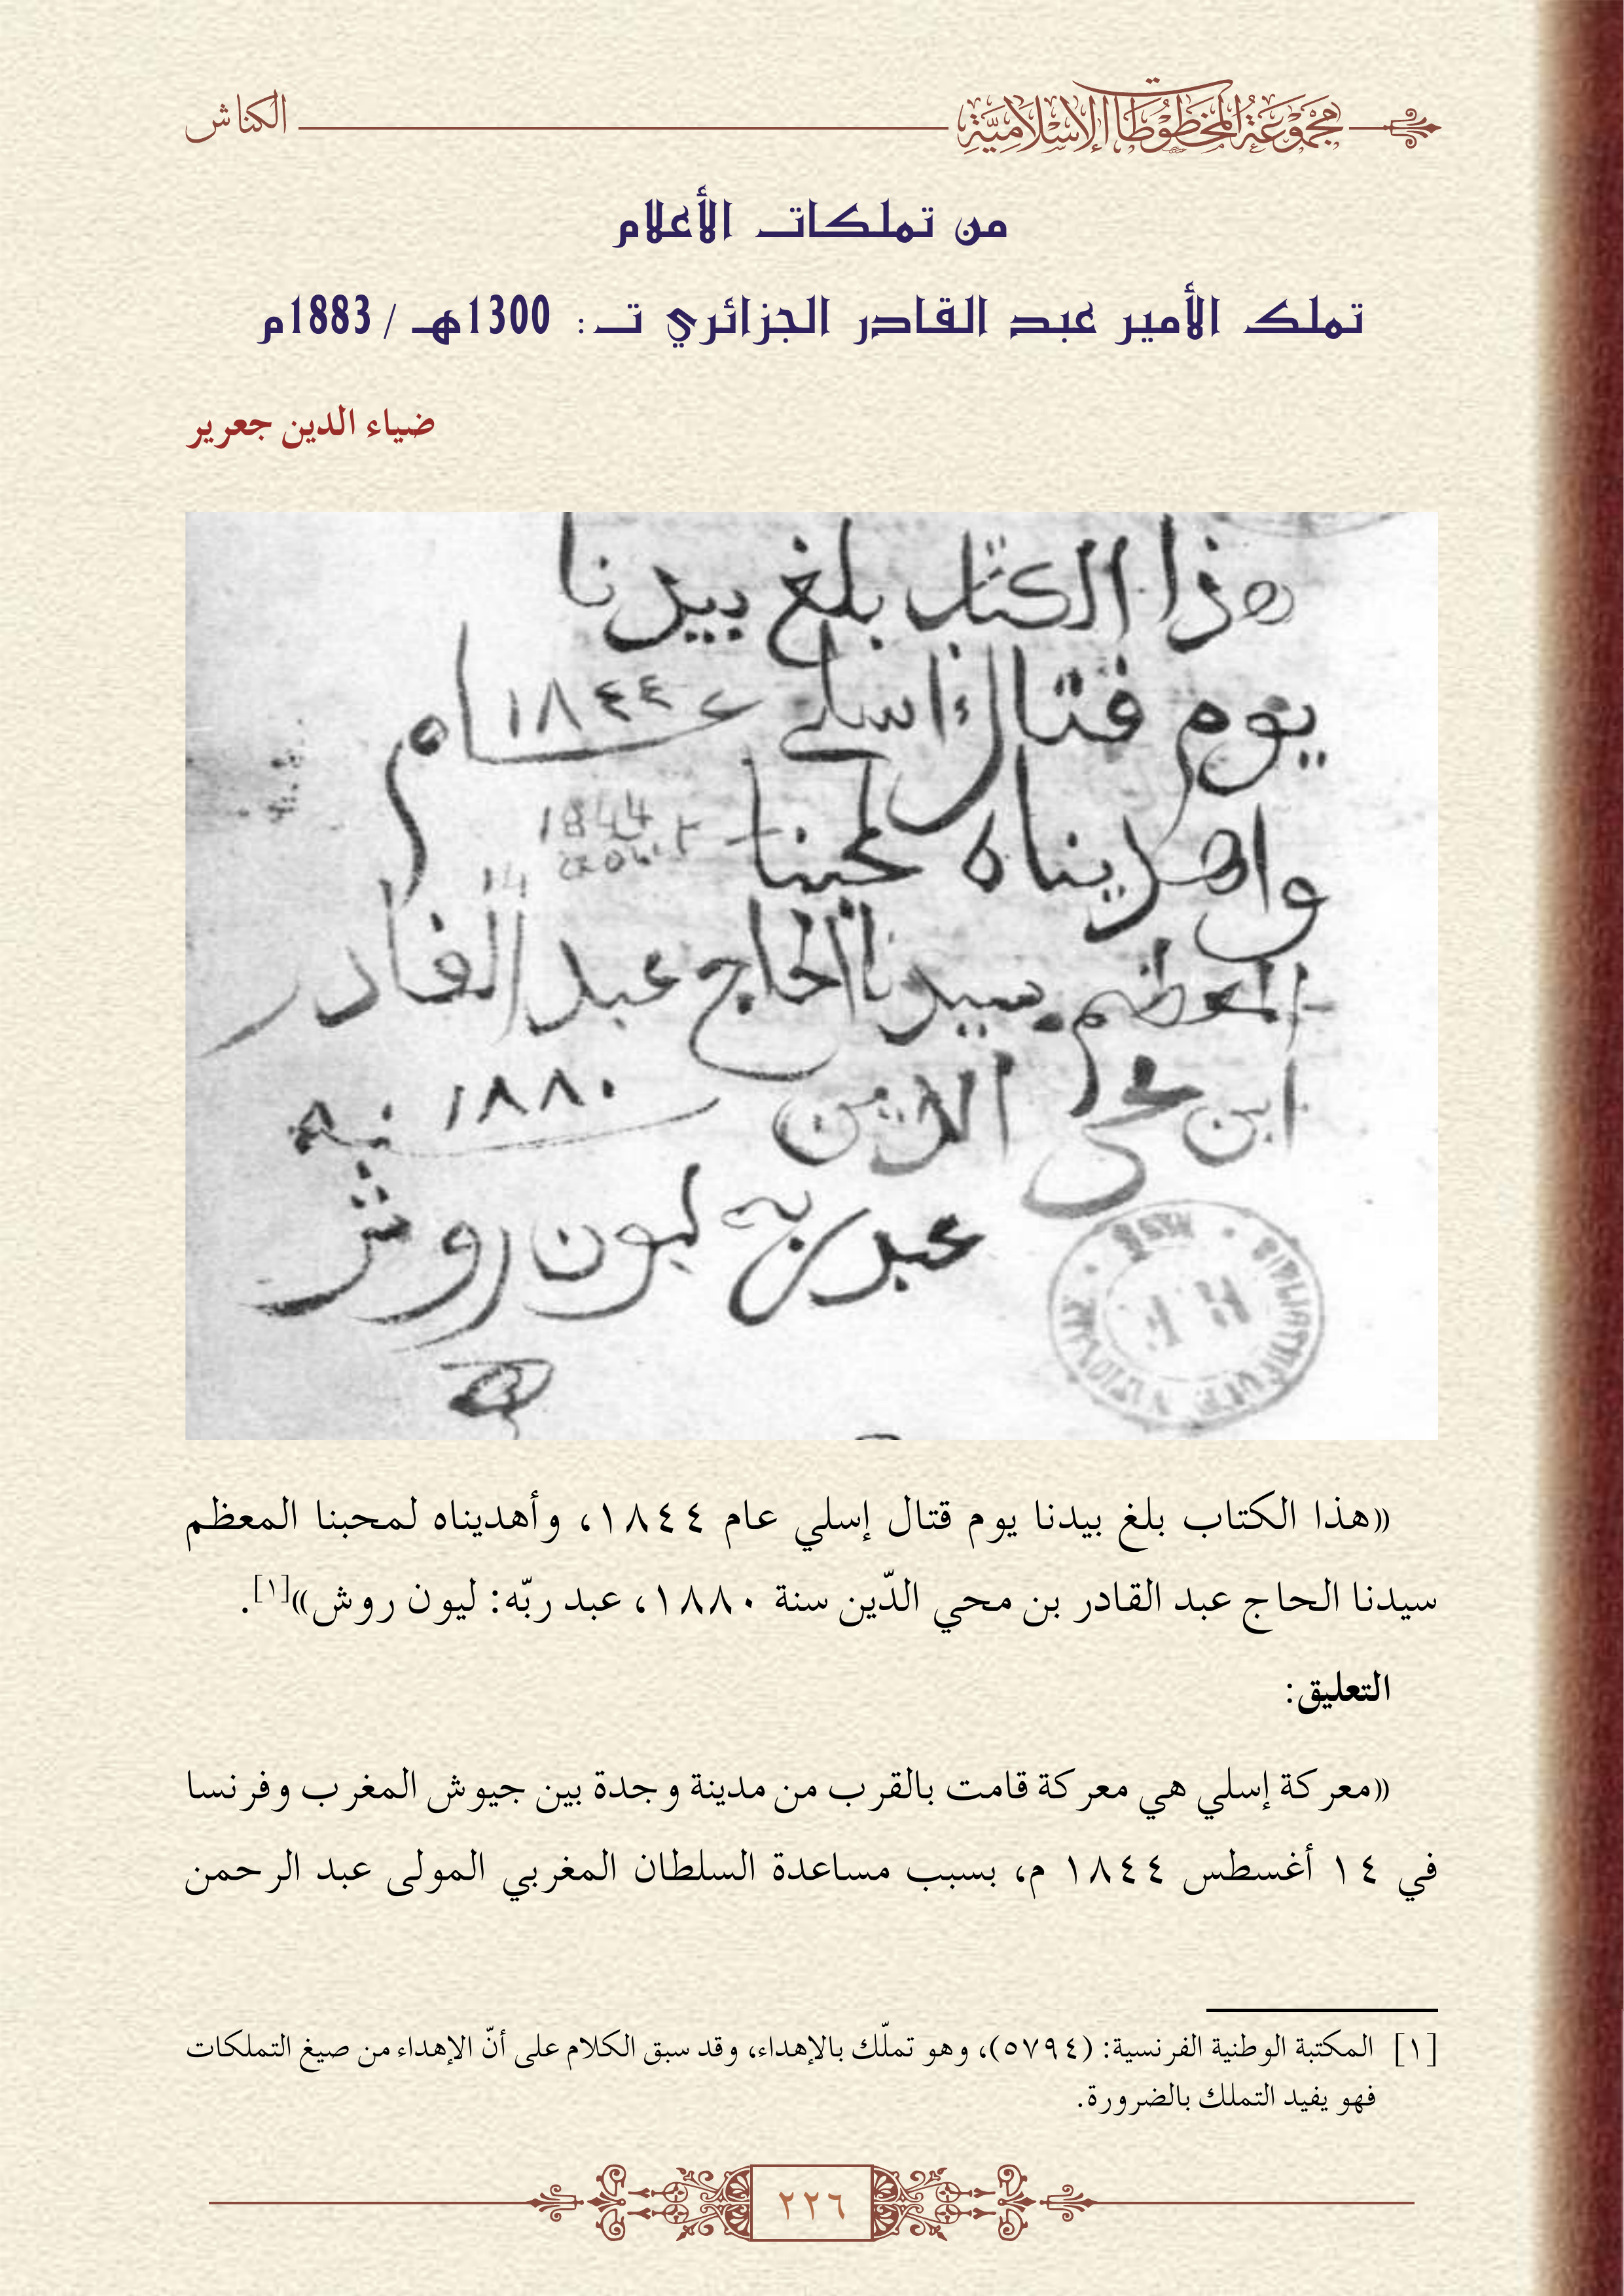 مجموعة المخطوطات الإسلامية
الكناش
من تملكات الأعلام
تملك الأمير عبد القادر الجزائري تـ: 1300هـ / 1883م
ضياء الدين جعرير
هذا الكتاب بلغ بيدنا
يوم قتال اسلي عام ١٨٤٤
واهديناه لمحبنا
1844
المعظم سيدنا الحاج عبد القادر
ابن محي الدين سنة ١٨٨٠
عبد ربه ليون روش
«هذا الكتاب بلغ بيدنا يوم قتال إسلي عام ١٨٤٤، وأهديناه لمحبنا المعظم
سيدنا الحاج عبد القادر بن محي الدّين سنة ١٨٨٠، عبد ربّه: ليون روش»[١].
التعليق:
«معركة إسلي هي معركة قامت بالقرب من مدينة وجدة بين جيوش المغرب وفرنسا
في ١٤ أغسطس ١٨٤٤ م، بسبب مساعدة السلطان المغربي المولى عبد الرحمن
[١] المكتبة الوطنية الفرنسية: (٥٧٩٤)، وهو تملّك بالإهداء، وقد سبق الكلام على أنّ الإهداء من صيغ التملكات
فهو يفيد التملك بالضرورة.
٢٢٦